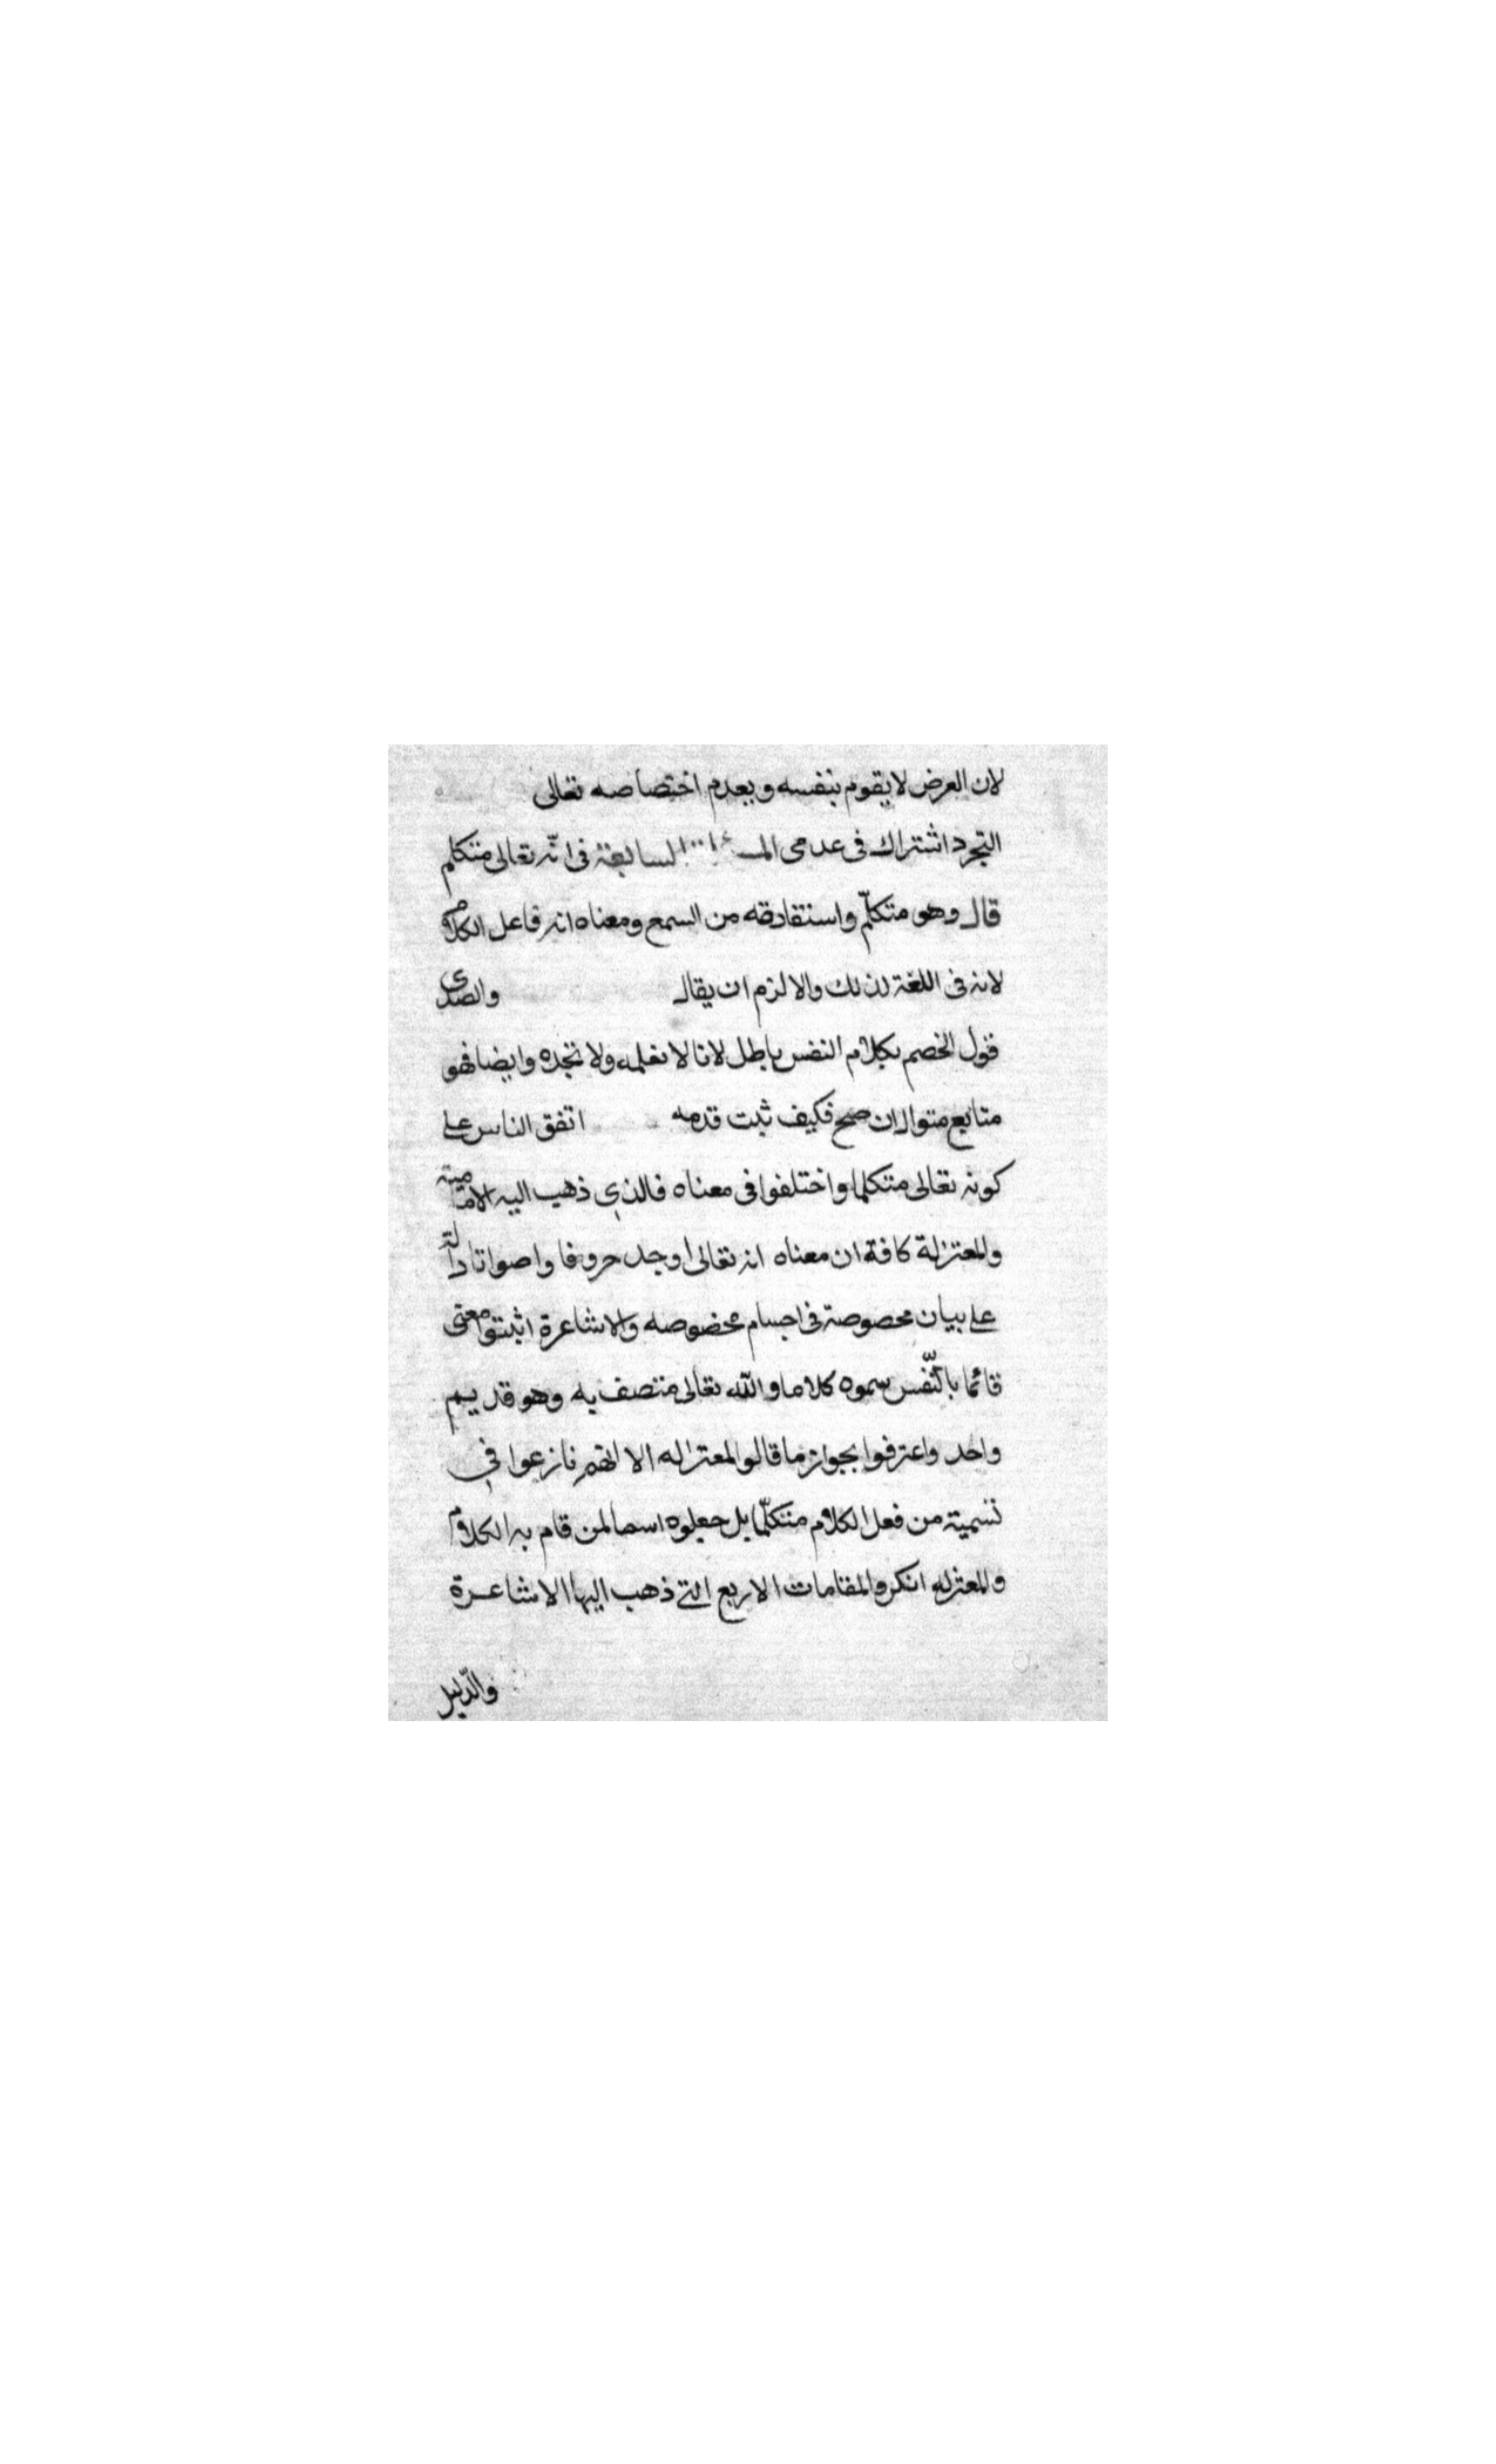 لان العرض لا يقوم بنفسه وبعدم اختصاصه تعالى
التجرد اشتراك فى عدمى السابعة فى انّه تعالى متكلم
قال وهو متكلّم واستفادته من السمع ومعناه انه فاعل الكلام
لانه فى اللغة لذلك والا لزم ان يقال والصدى
قول الخصم بكلام النفس باطل لانا لا نعلمه ولا نجده وايضا فهو
متابع متوال ان صح فكيف ثبت قدمه اتفق الناس على
كونه تعالى متكلما واختلفوا فى معناه فالذي ذهب اليه الامامية
والمعتزلة كافة ان معناه انه تعالى اوجد حروفا واصواتا دالة
على بيان مخصوصة فى اجسام مخضوصه والاشاعرة اثبتوا معنى
قائما بالنّفس سموه كلاما والله تعالى متصف به وهو قديم
واحد واعترفوا بجواز ما قالو المعتزله الا انهم نازعوا في
تسمية من فعل الكلام متكلّما بل جعلوه اسما لمن قام به الكلام
والمعتزله انكروا المقامات الاربع التى ذهب اليها الاشاعرة
والدّليل